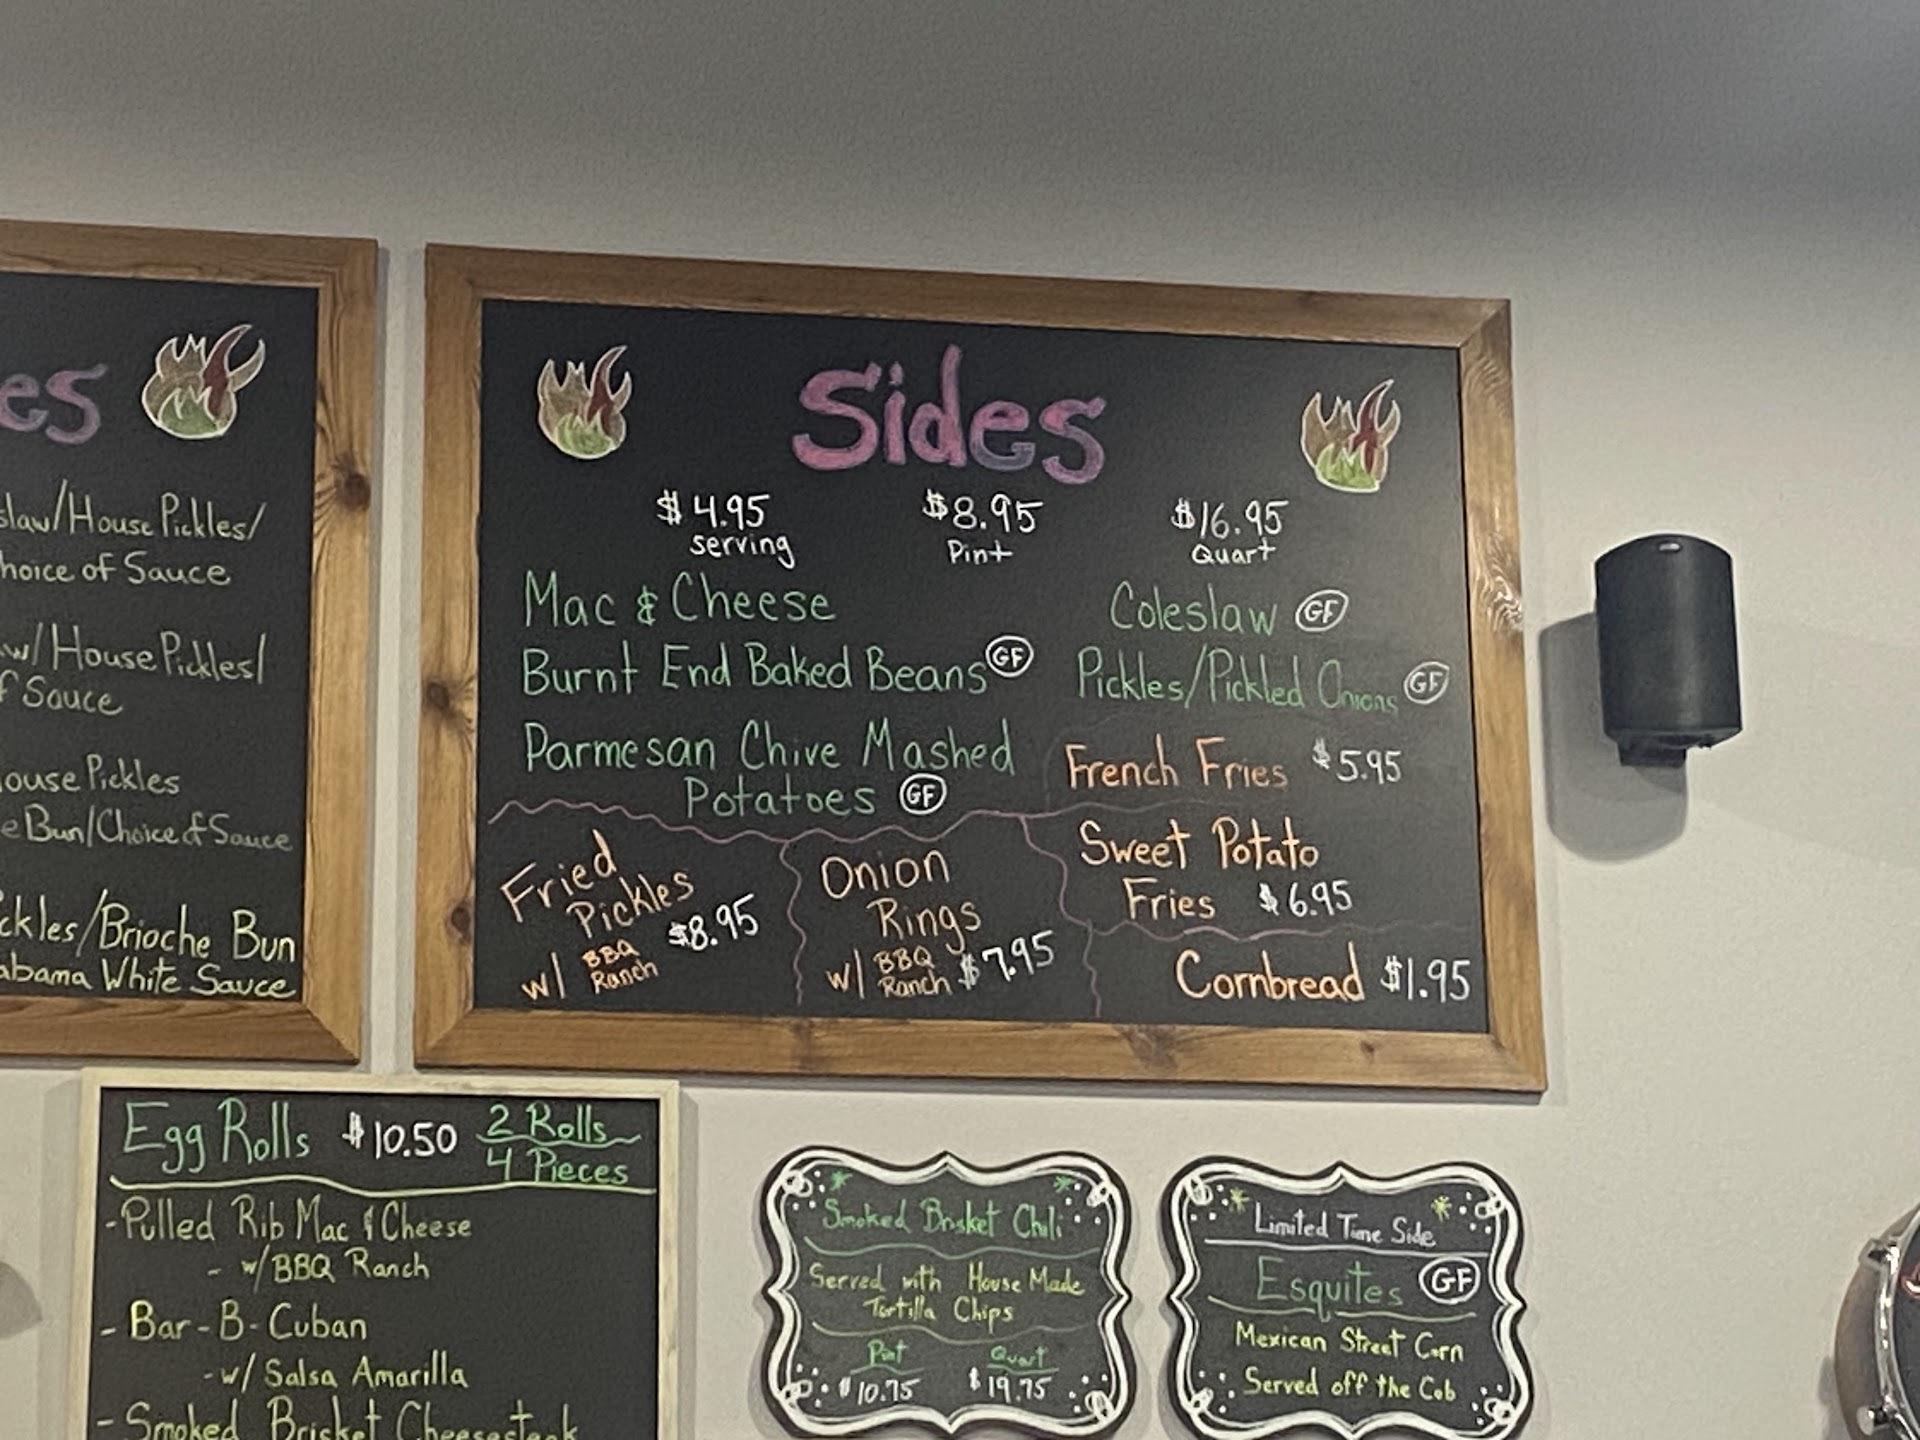 es
slaw/House Pickles/
hoice of Sauce
w/House Pickles/
f Sauce
ouse Pickles
e Bun/Choice of Sauce
ckles/Brioche Bun
abama White Sauce
Sides
$4.95 serving
$8.95 Pint
$16.95 Quart
Mac & Cheese
Burnt End Baked Beans GF
Parmesan Chive Mashed
Potatoes GF
Coleslaw GF
Pickles/Pickled Onions GF
French Fries $5.95
Sweet Potato
Fries $6.95
Cornbread $1.95
Fried
Pickles
w/ BBQ Ranch $8.95
Onion
Rings
w/ BBQ Ranch $7.95
Egg Rolls $10.50 2 Rolls
4 Pieces
- Pulled Rib Mac & Cheese
- w/BBQ Ranch
- Bar-B-Cuban
- w/ Salsa Amarilla
- Smoked Brisket Cheesesteak
Smoked Brisket Chili
Served with House Made
Tortilla Chips
Pint Quart
$10.75 $19.75
Limited Time Side
Esquites GF
Mexican Street Corn
Served off the Cob